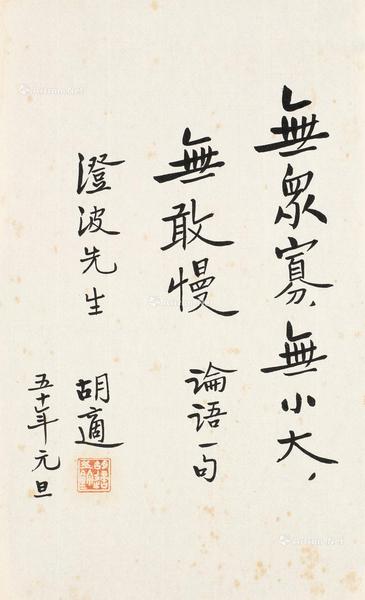 無眾寡，無小大，
無敢慢
論语一句
澄波先生
胡適
五十年元旦